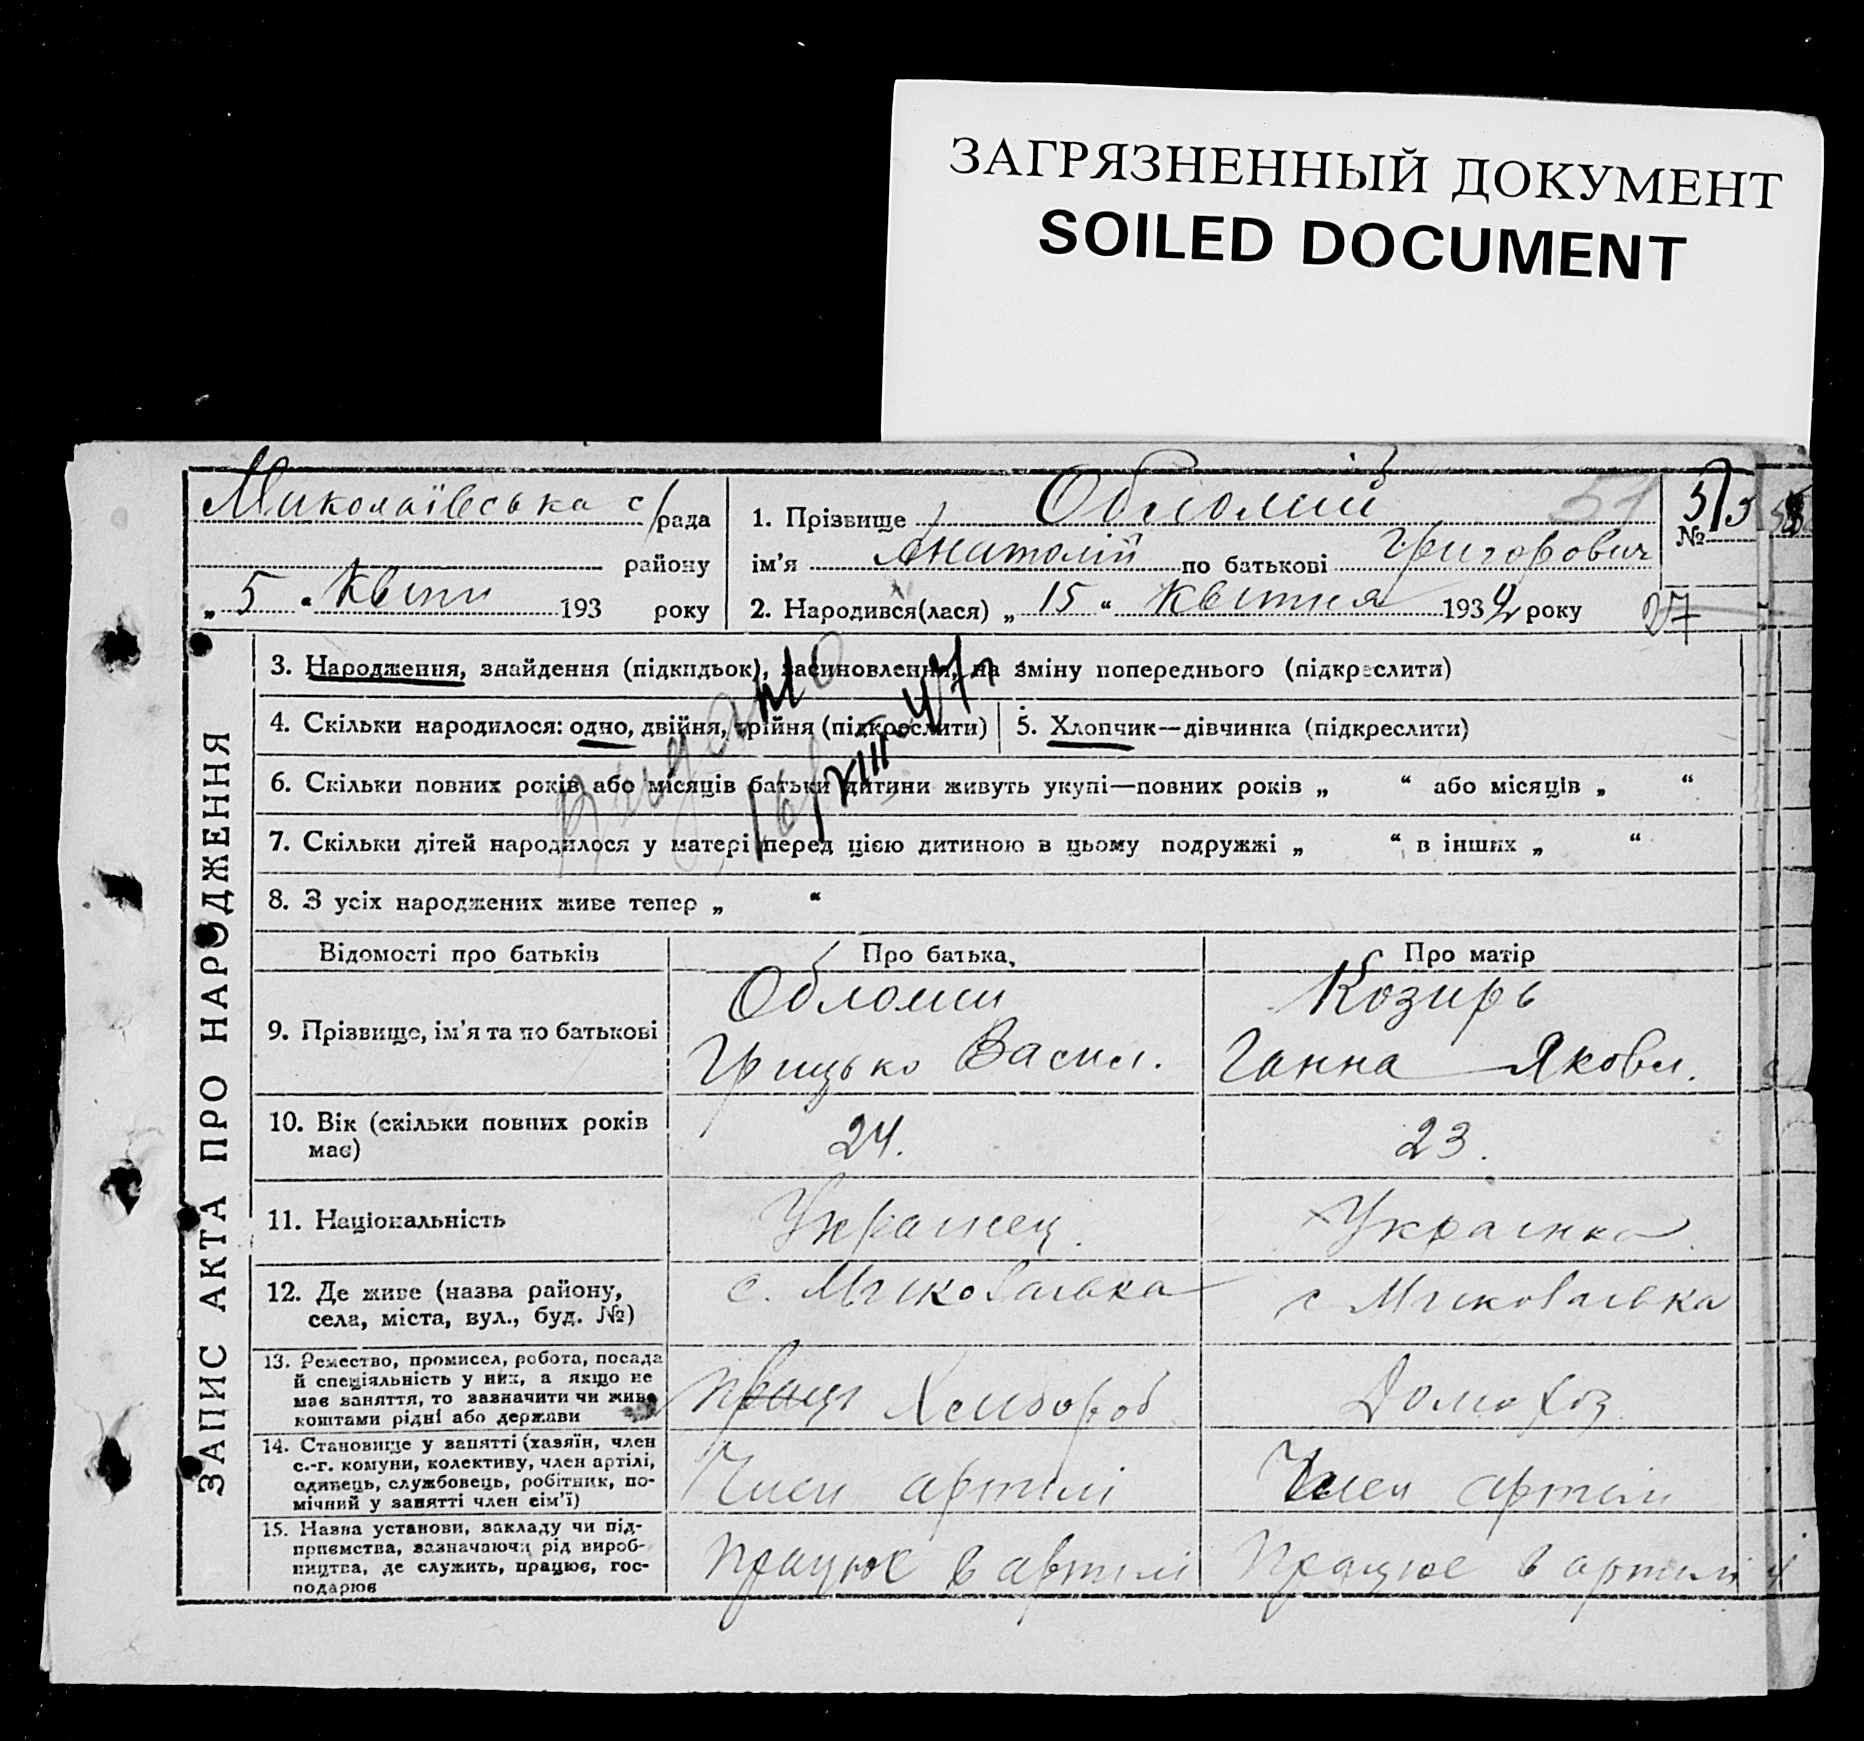 ЗАГРЯЗНЕННЫЙ ДОКУМЕНТ
SOILED DOCUMENT
Миколаївська с/рада
району
„ 5 “ Квітн 193 року
1. Прізвище Обломий 51
ім’я Анатолій по батькові Григорович
2. Народився(лася) „ 15 “ Квітня 1934 року
№
27
ЗАПИС АКТА ПРО НАРОДЖЕННЯ
3. Народження, знайдення (підкидьок), засиновлення, на зміну попереднього (підкреслити)
4. Скільки народилося: одно, двійня, трійня (підкреслити)
5. Хлопчик—дівчинка (підкреслити)
6. Скільки повних років або місяців батьки дитини живуть укупі—повних років „ “ або місяців „ “
7. Скільки дітей народилося у матері перед цією дитиною в цьому подружжі „ “ в інших „ “
8. З усіх народжених живе тепер „ “
Видано
16/VIII-47
Відомості про батьків
Про батька,
Про матір
9. Прізвище, ім’я та по батькові
Обломий
Грицько Васил.
Козирь
Ганна Яковл.
10. Вік (скільки повних років
має)
24.
23.
11. Національність
Украинец.
Украинка.
12. Де живе (назва району,
села, міста, вул., буд. №)
с. Миколаївка
с Миколаївка
13. Ремество, промисел, робота, посада
й спеціяльність у них, а якщо не
має заняття, то зазначити чи живе
коштами рідні або держави
Хлибороб
Домохоз
14. Становище у занятті (хазяїн, член
с.-г. комуни, колективу, член артілі,
одинець, службовець, робітник, по-
мічний у занятті член сім’ї)
Член артилі
Член артилі
15. Назва установи, закладу чи під-
приємства, зазначаючи рід вироб-
ництва, де служить, працює, гос-
подарює
Працює в артилі
Працює в артилі